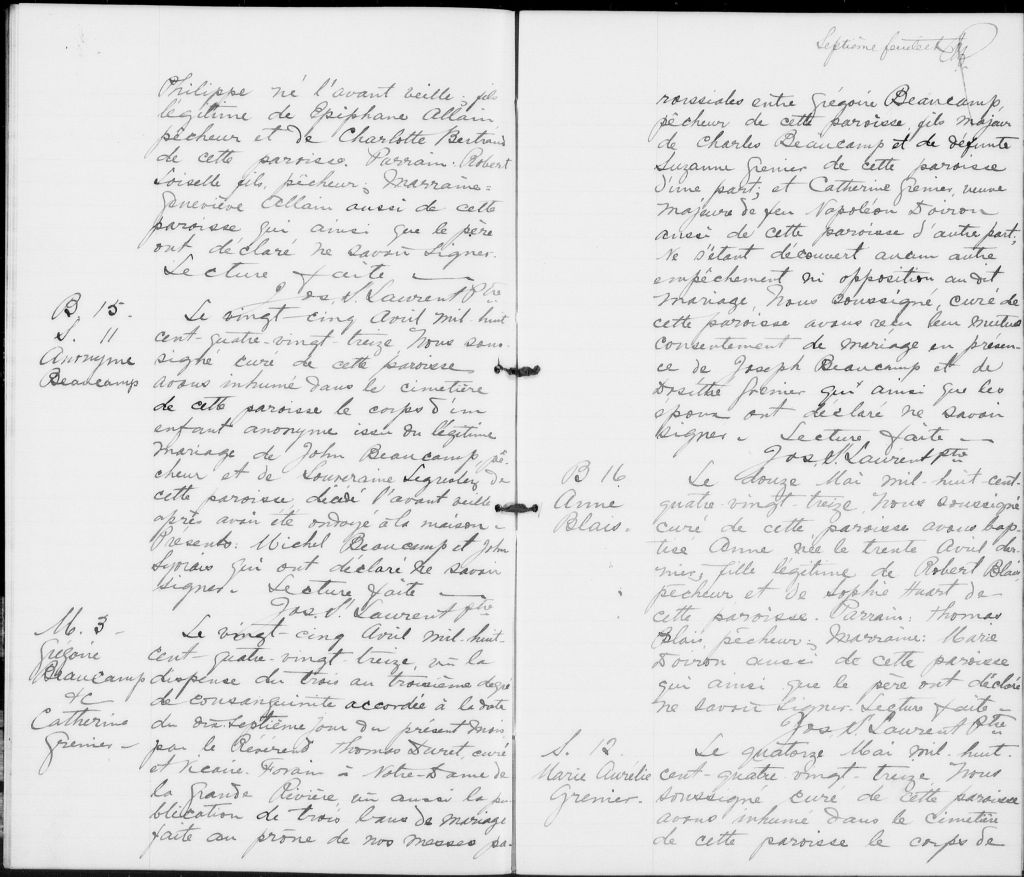 Philippe né l'avant veille, fils
légitime de Epiphane Allain
pêcheur et de Charlotte Bertrand
de cette paroisse. Parrain: Robert
Loiselle fils, pêcheur; Marraine=
Geneviève Allain aussi de cette
paroisse qui ainsi que le père
ont déclaré ne savoir signer.
Lecture faite —
Jos. St. Laurent Ptre
B. 15.
S. 11
Anonyme
Beaucamp
Le vingt-cinq Avril mil-huit
cent-quatre-vingt-treize Nous sous-
signé curé de cette paroisse
avons inhumé dans le cimetière
de cette paroisse le corps d'un
enfant anonyme issu du légitime
mariage de John Beaucamp, pê-
cheur et de Souveraine de
cette paroisse décédé l'avant veille
après avoir été ondoyé à la maison -
Presents: Michel Beaucamp et John
qui ont déclaré ne savoir
signer - Lecture faite —
Jos. St. Laurent ptre
M. 3 -
Grégoire
Beaucamp
&
Catherine
Grenier -
Le vingt-cinq Avril mil-huit-
cent-quatre-vingt-treize, vu la
dispense du trois au troisième degré
de consanguinité accordée à la date
du dix-septième jour du présent mois
par le Révérend Thomas Duret, curé
et Vicaire-Forain à Notre-Dame de
la Grande Rivière, vu aussi la pu-
blication de trois bans de mariage
faite au prône de nos messes pa-
Septième feuillet
roissiales entre Grégoire Beaucamp,
pêcheur de cette paroisse fils majeur
de Charles Beaucamp et de défunte
Suzanne Grenier de cette paroisse
d'une part; et Catherine Grenier, veuve
majeure de feu Napoléon Doiron
aussi de cette paroisse d'autre part;
Ne s'étant découvert aucun autre
empêchement ni opposition au dit
mariage, Nous soussigné, curé de
cette paroisse avons reçu leur mutuel
consentement de mariage en présen-
ce de Joseph Beaucamp et de
Dosithé Grenier qui ainsi que les
époux ont déclaré ne savoir
signer - Lecture faite —
Jos. St. Laurent ptre
B 16
Anne
Blais.
Le douze Mai mil-huit-cent-
quatre-vingt-treize Nous soussigné
curé de cette paroisse avons bap-
tisé Anne née le trente Avril der-
nier, fille légitime de Robert Blais
pêcheur et de Sophie Huart de
cette paroisse. Parrain: Thomas
Blais, pêcheur; Marraine: Marie
Doiron aussi de cette paroisse
qui ainsi que le père ont déclaré
ne savoir signer. Lecture faite -
Jos. St. Laurent Ptre
S. 12.
Marie Aurélie
Grenier.
Le quatorze Mai mil-huit-
cent-quatre-vingt-treize Nous
soussigné curé de cette paroisse
avons inhumé dans le cimetière
de cette paroisse le corps de